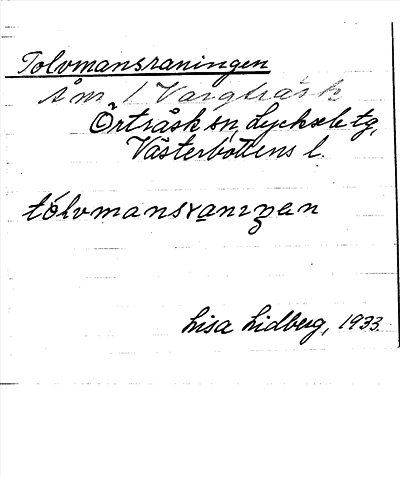 Tolvmansraningen
Åm. i Vargträsk
Örträsk sn, Lycksele tg,
Västerbottens l.
tólvmansra̠nıŋen
Lisa Lidberg, 1933